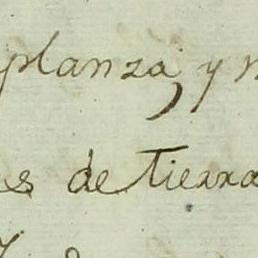 planza, y
s de Tierra